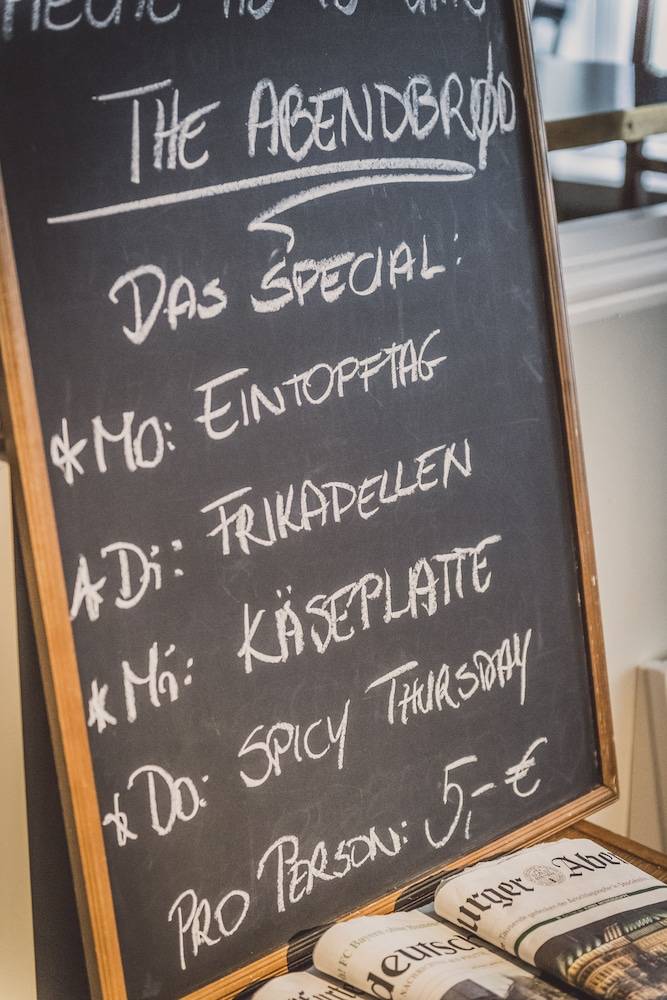 THE ABENDBRØD
DAS SPECIAL:
*MO: EINTOPFTAG
*Di: FRIKADELLEN
*Mi: KÄSEPLATTE
*DO: SPICY THURSDAY
PRO PERSON: 5,- €
burger Abe
FC Bayern
deutsch